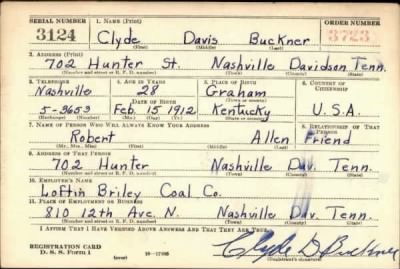 SERIAL NUMBER 1. NAME (Print) ORDER NUMBER
3124 Clyde Davis Buckner 3723
(First) (Middle) (Last)
2. ADDRESS (Print)
702 Hunter St. Nashville Davidson Tenn.
(Number and street or R. F. D. number) (Town) (County) (State)
3. TELEPHONE 4. AGE IN YEARS 5. PLACE OF BIRTH 6. COUNTRY OF CITIZENSHIP
Nashville 28 Graham
DATE OF BIRTH (Town or county)
5-3653 Feb. 15 1912 Kentucky U.S.A.
(Exchange) (Number) (Mo.) (Day) (Yr.) (State or country)
7. NAME OF PERSON WHO WILL ALWAYS KNOW YOUR ADDRESS 8. RELATIONSHIP OF THAT PERSON
Robert Allen Friend
(Mr., Mrs., Miss) (First) (Middle) (Last)
9. ADDRESS OF THAT PERSON
702 Hunter Nashville Dav. Tenn.
(Number and street or R. F. D. number) (Town) (County) (State)
10. EMPLOYER'S NAME
Loftin Briley Coal Co.
11. PLACE OF EMPLOYMENT OR BUSINESS
810 12th Ave. N. Nashville Dav. Tenn.
(Number and street or R. F. D. number) (Town) (County) (State)
I AFFIRM THAT I HAVE VERIFIED ABOVE ANSWERS AND THAT THEY ARE TRUE.
REGISTRATION CARD
D. S. S. Form 1
(over) Clyde D Buckner